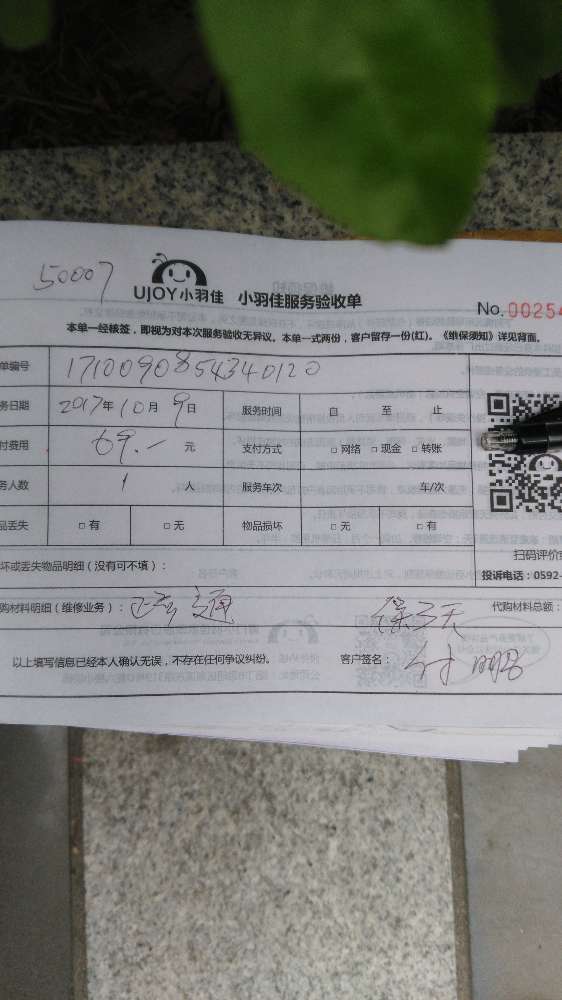 50007
UJOY小羽佳 小羽佳服务验收单
No.00254
本单一经核签,即视为对本次服务验收无异议。本单一式两份,客户留存一份(红)。《维保须知》详见背面。
单编号 1710090854340120
务日期 2017年10月9日 服务时间 自 至 止
付费用 69.- 元 支付方式 □网络 □现金 □转账
务人数 1 人 服务车次 车/次
品丢失 □有 □无 物品损坏 □无 □有
扫码评价
坏或丢失物品明细(没有可不填):
投诉电话:0592-
购材料明细(维修业务): 通 保 天 代购材料总额:
以上填写信息已经本人确认无误,不存在任何争议纠纷。 客户签名: